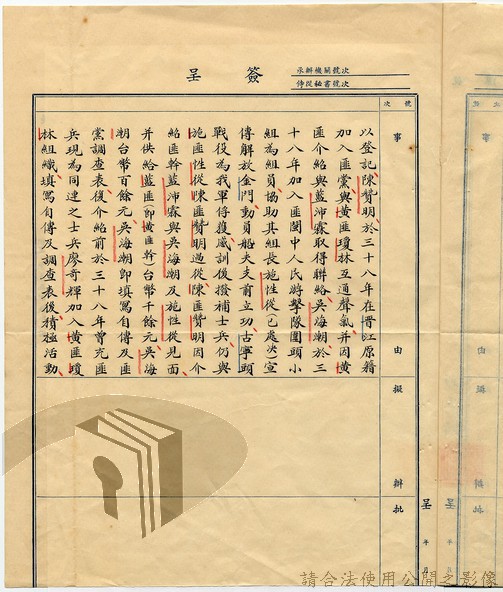 簽呈
承辦機關號次
侍從祕書號次
號次
事由
擬辦
批
以登記陳贊明於三十八年在晉江原籍
加入匪黨與黃匪瓊林互通聲氣并因黃
匪介紹與藍沛霖取得聯絡吳海潮於三
十八年加入匪閩中人民游擊隊圍頭小
組為組員協助其組長施性從(已處決)宣
傳解放金門動員船夫支前立功古寧頭
戰役為我軍俘獲感訓後撥補士兵仍與
施匪性從陳匪贊明過從陳匪贊明因介
紹匪幹藍沛霖與吳海潮及施性從見面
并供給藍匪即黃匪幹)台幣千餘元吳海
潮台幣百餘元吳海潮即填寫自傳及匪
黨調查表後介紹前於三十八年曾充匪
兵現為同連之士兵廖奇輝加入黃匪瓊
林組織填寫自傳及調查表後積極活動
呈
年
月
請合法使用公開之影像